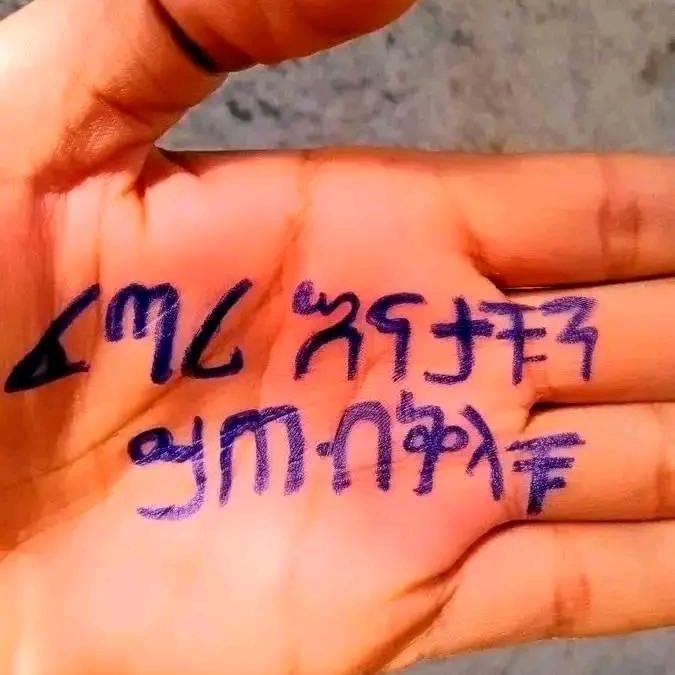 ፈጣሪ እናታችን
ይጠብቅላቹ